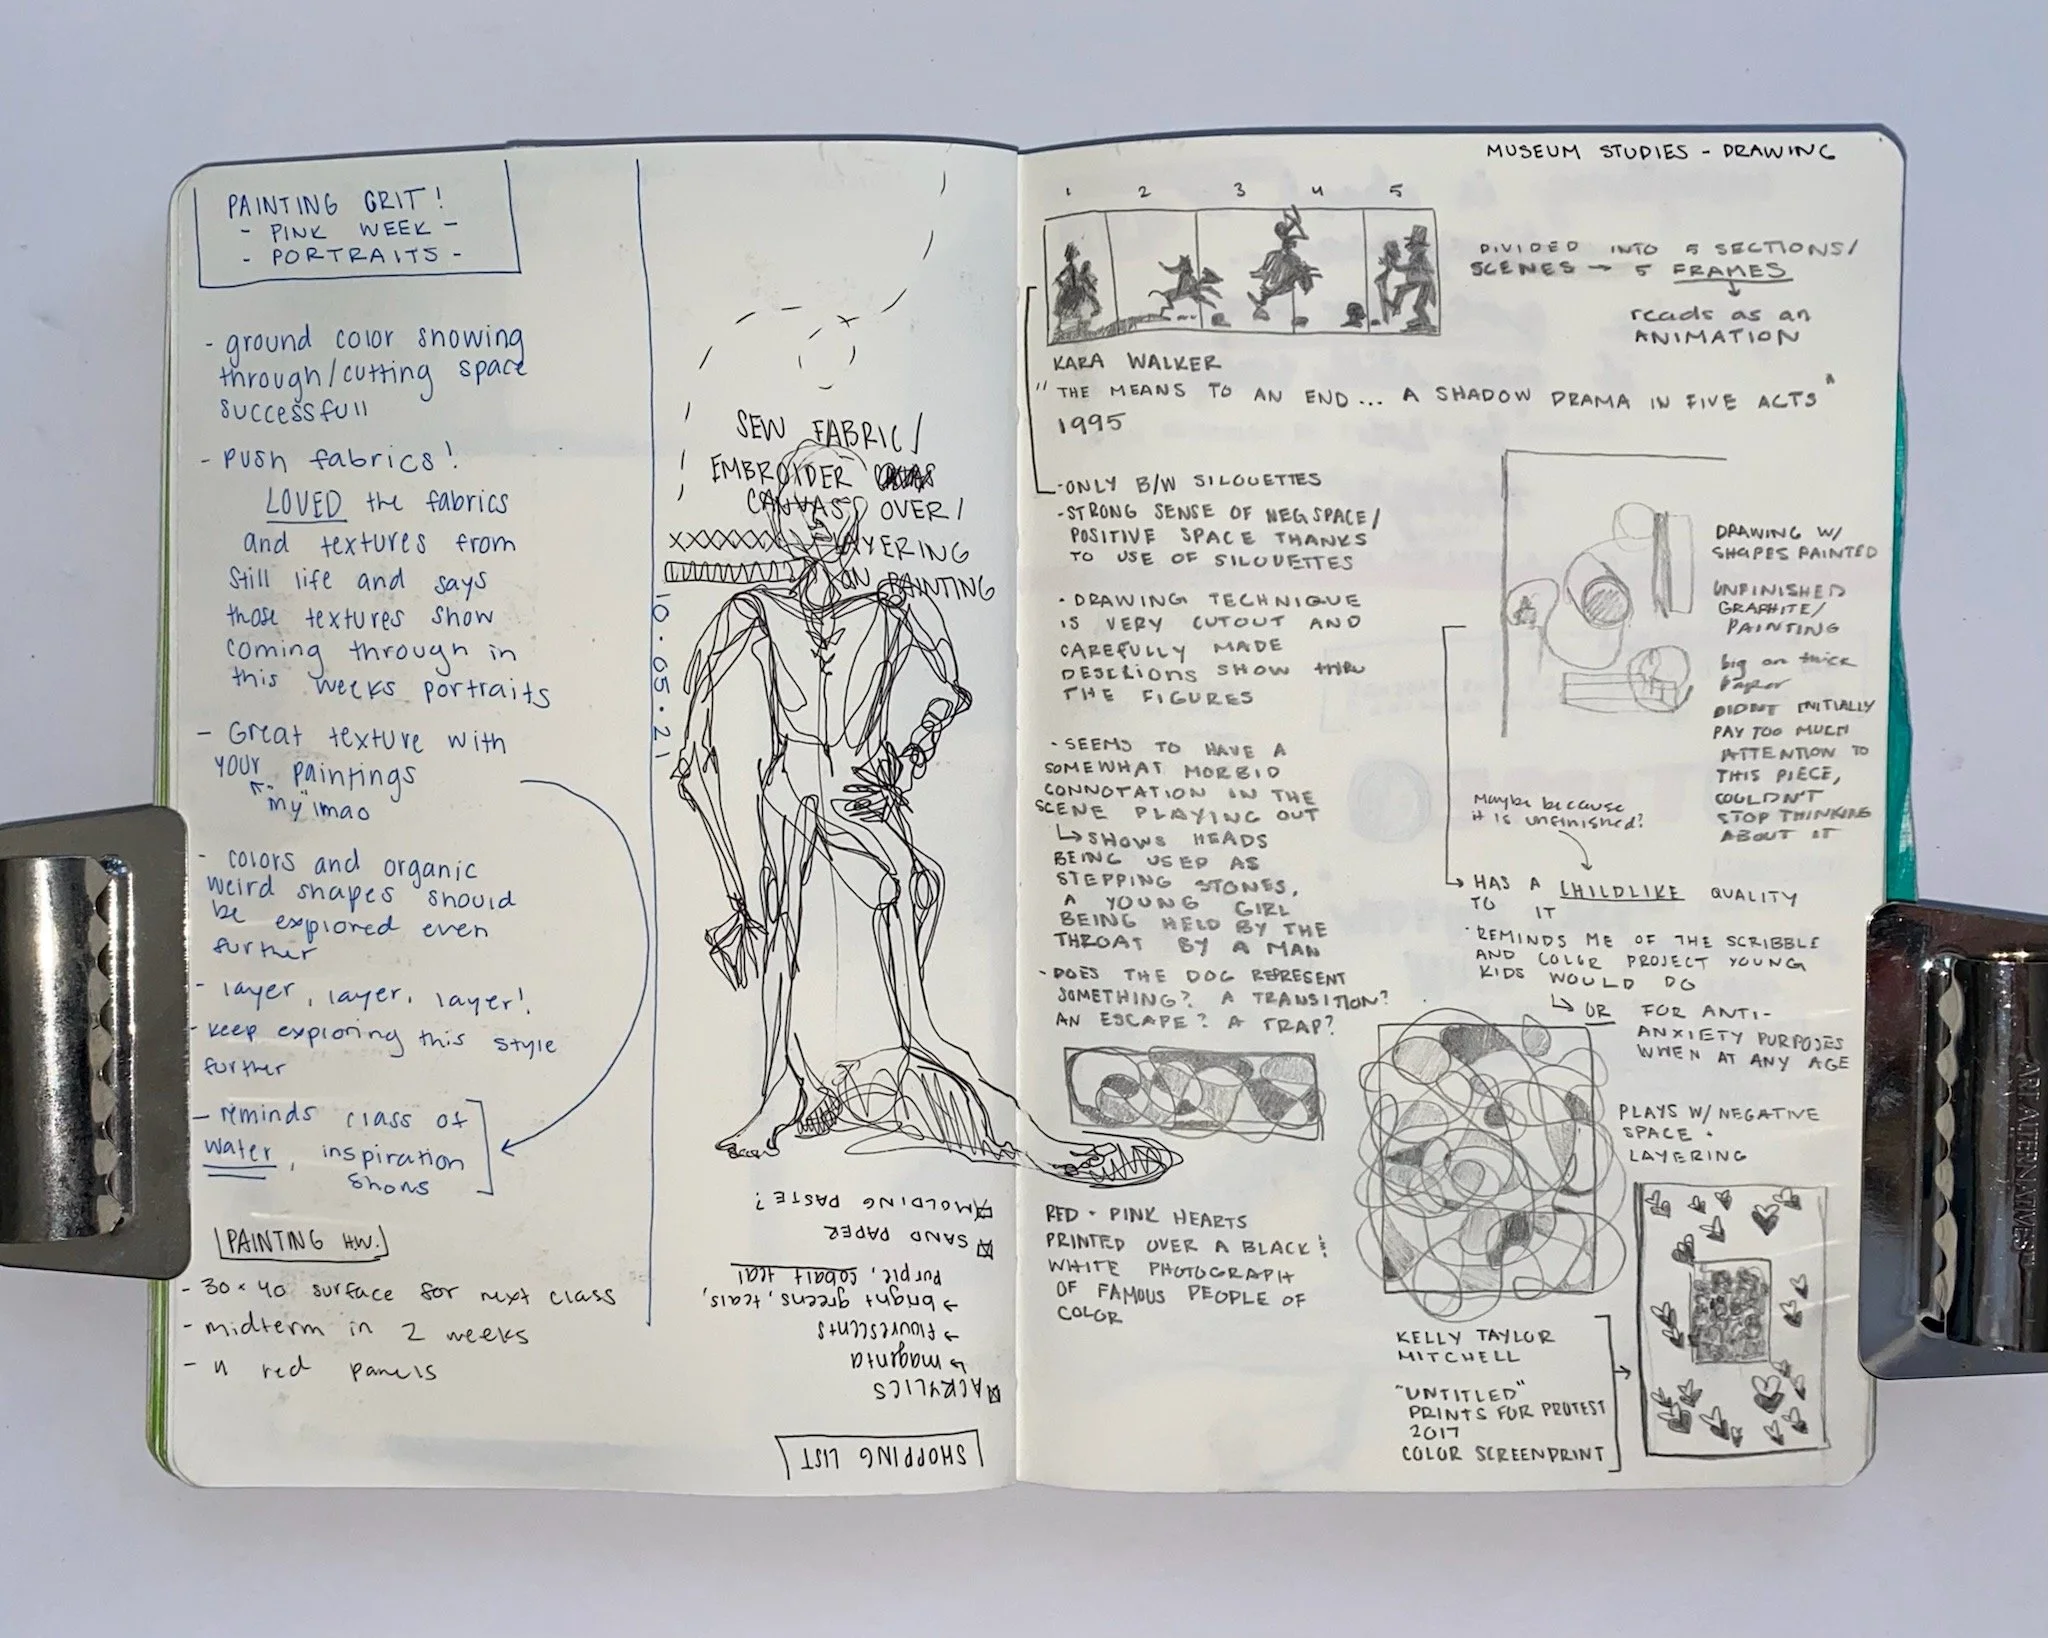 PAINTING CRIT!
- PINK WEEK -
- PORTRAITS -
- ground color showing
through/cutting space
successfull
- push fabrics!
LOVED the fabrics
and textures from
still life and says
those textures show
coming through in
this weeks portraits
- Great texture with
your paintings
"my" lmao
- colors and organic
weird shapes should
be explored even
further
- layer, layer, layer!
- keep exploring this style
further
- reminds class of
water, inspiration
shows
PAINTING H.W.
- 30 x 40 surface for next class
- midterm in 2 weeks
- 4 red panels
10.05.21
SEW FABRIC/
EMBROIDER
CANVAS OVER/
LAYERING
ON PAINTING
SHOPPING LIST
ACRYLICS
magenta
→ flourescents
→ bright greens, teals,
purple, cobalt teal
SAND PAPER
MOLDING PASTE?
MUSEUM STUDIES - DRAWING
1 2 3 4 5
DIVIDED INTO 5 SECTIONS/
SCENES → 5 FRAMES
reads as an
ANIMATION
KARA WALKER
"THE MEANS TO AN END... A SHADOW DRAMA IN FIVE ACTS"
1995
- ONLY B/W SILOUETTES
- STRONG SENSE OF NEG SPACE/
POSITIVE SPACE THANKS
TO USE OF SILOUETTES
- DRAWING TECHNIQUE
IS VERY CUTOUT AND
CAREFULLY MADE
SHOW THRU
THE FIGURES
- SEEMS TO HAVE A
SOMEWHAT MORBID
CONNOTATION IN THE
SCENE PLAYING OUT
↳ SHOWS HEADS
BEING USED AS
STEPPING STONES,
A YOUNG GIRL
BEING HELD BY THE
THROAT BY A MAN
- DOES THE DOG REPRESENT
SOMETHING? A TRANSITION?
AN ESCAPE? A TRAP?
DRAWING W/
SHAPES PAINTED
UNFINISHED
GRAPHITE/
PAINTING
big on thick
paper
DIDNT INITIALLY
PAY TOO MUCH
ATTENTION TO
THIS PIECE,
COULDN'T
STOP THINKING
ABOUT IT
Maybe because
it is unfinished?
HAS A CHILDLIKE QUALITY
TO IT
- REMINDS ME OF THE SCRIBBLE
AND COLOR PROJECT YOUNG
KIDS WOULD DO
↳ OR FOR ANTI-
ANXIETY PURPOSES
WHEN AT ANY AGE
PLAYS W/ NEGATIVE
SPACE +
LAYERING
RED + PINK HEARTS
PRINTED OVER A BLACK &
WHITE PHOTOGRAPH
OF FAMOUS PEOPLE OF
COLOR
KELLY TAYLOR
MITCHELL
"UNTITLED"
PRINTS FOR PROTEST
2017
COLOR SCREENPRINT
ART ALTERNATIVES